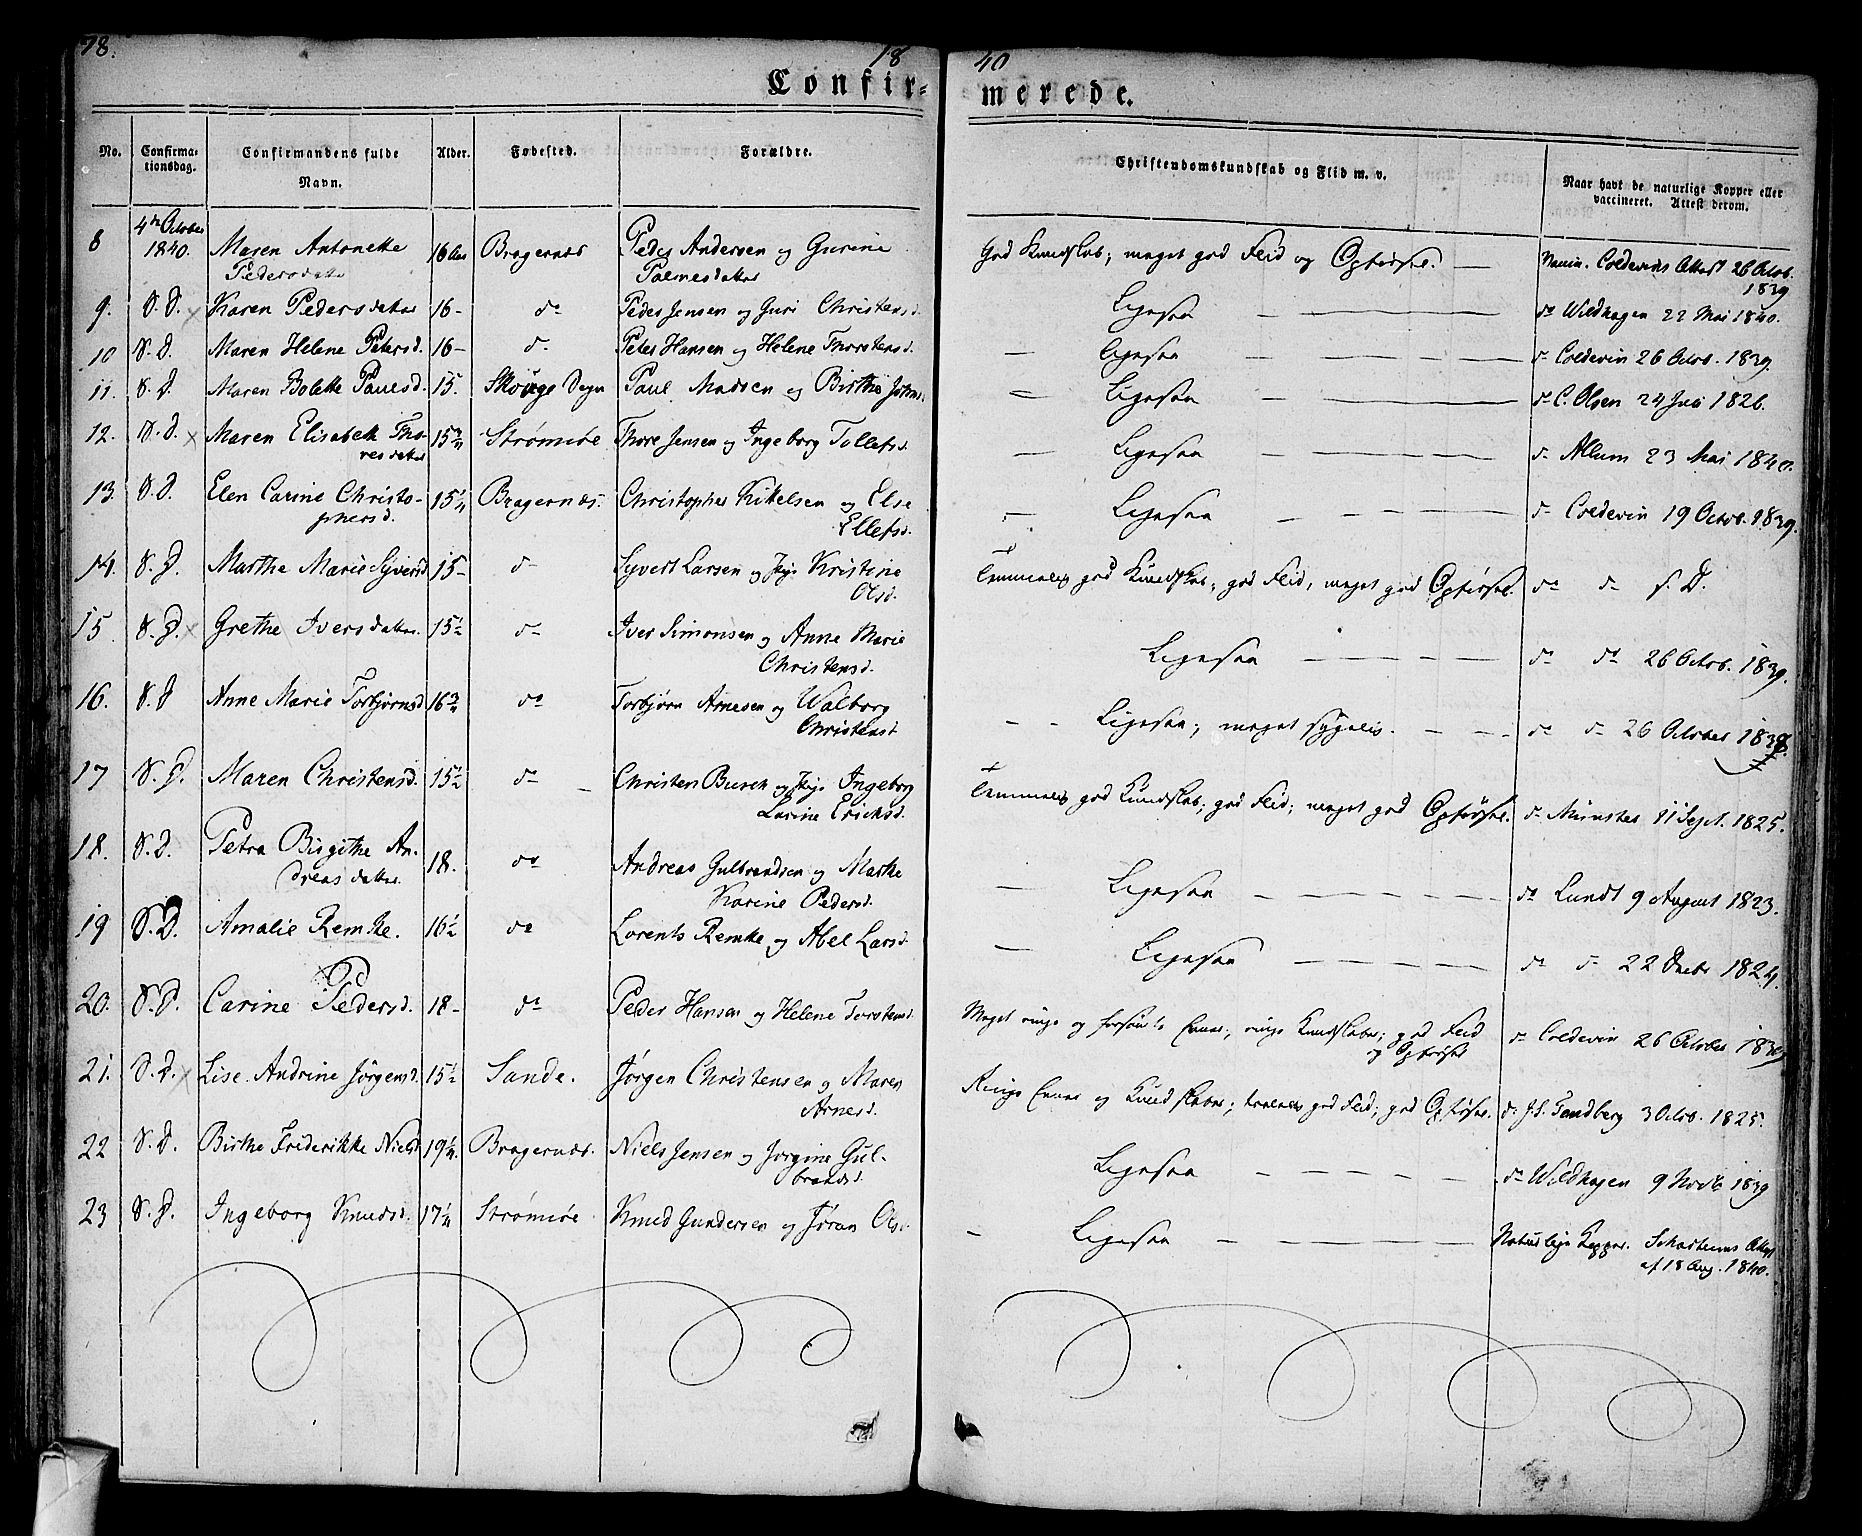 78.
18 40
Confir- merede.
No. Confirma-tionsdag. Confirmandens fulde Navn. Alder. Fødested. Forældre. Christendomskundskab og Flid m. v. Naar havt de naturlige Kopper eller vaccineret. Attest derom.
8 4de October 1840. Maren Antonette Pedersdatter 16 Bragernæs Peder Andersen og Gurine Palmesdatter God Kundskab; meget god Flid og Opførsel. — Vaccin. Coldevins Attest 26 Octob. 1839
9. S. D. Karen Pedersdatter 16 - do Peder Jensen og Guri Christensd. Ligesaa — do Wildhagen 22 Mai 1840.
10 S. D. Maren Helene Petersd. 16 - do Peter Hansen og Helene Thorstensd. — Ligesaa — do Coldevin 26 Octob. 1839.
11. S. D. Maren Bolette Paulsd. 15. Skouge Paul Madsen og Birthe — Ligesaa — do C. Olsen 24 Juli 1826.
12. S. D. Maren Elisabeth Tho-resdatter 15 3/4 Strømsøe Thore Jensen og Ingeborg Tollefsd. — Ligesaa — do Allum 23 Mai 1840.
13. S. D. Elen Carine Christo-phersd. 15 1/4 Bragernæs. Christopher Kittelsen og Else Ellefsd. — Ligesaa — do Coldevin 19 Octob. 1839.
14. S. D. Marthe Marie Syversd. 15 - do Syvert Larsen og Kristine Olsd. Temmelig god Kundskab; god Flid, meget god Opførsel. do do S. D.
15. S. D. Grethe Iversdatter. 15 1/2 do Iver Simonsen og Anne Marie Christensd. Ligesaa — do do 26 Octob. 1839.
16. S. D. Anne Marie Torbjørnsd. 16 3/4 do Torbjørn Arnesen og Walborg Christensd. — Ligesaa; meget sygelig. — do do 26 October 1839.
17 S. D. Maren Christensd. 15 1/2 do Christen Busch og Ingeborg Larine Ericksd. Temmelig god Kundskab; god Flid; meget god Opførsel. do Münster 11 Sept. 1825.
18. S. D. Petra Birgithe An-dreasdatter. 18. do Andreas Gulbrandsen og Marthe Karine Pedersd. — Ligesaa — do Lundt 9 August 1823.
19 S. D. Amalie Remke. 16 1/2 do Lorents Remke og Abel Larsd. — Ligesaa — do do 22 1824.
20. S. D. Carine Pedersd. 18 - do Peder Hansen og Helene Torstensd. Meget ringe og Evner, ringe Kundskaber; god Flid og Opførsel do Coldevin 26 October 1839
21. S. D. Lise Andrine Jørgensd. 15 1/2 Sande. Jørgen Christensen og Maren Arnesd. Ringe Evner og Kundskaber; god Flid; god Opførsel. do J. S. Tandberg 3 Octob. 1825.
22 S. D. Birthe Friderikke Nielsd 19 1/4. Bragernæs. Niels Jensen og Jørgine Gul-brandsd. Ligesaa — do Wildhagen 9 Novb 1839
23 S. D. Ingeborg Knudsd. 17 1/4 Strømsøe Knud Gundersen og Jøran Olsd. — Ligesaa — Naturlige Kopper. Attest af 18 Aug. 1840.